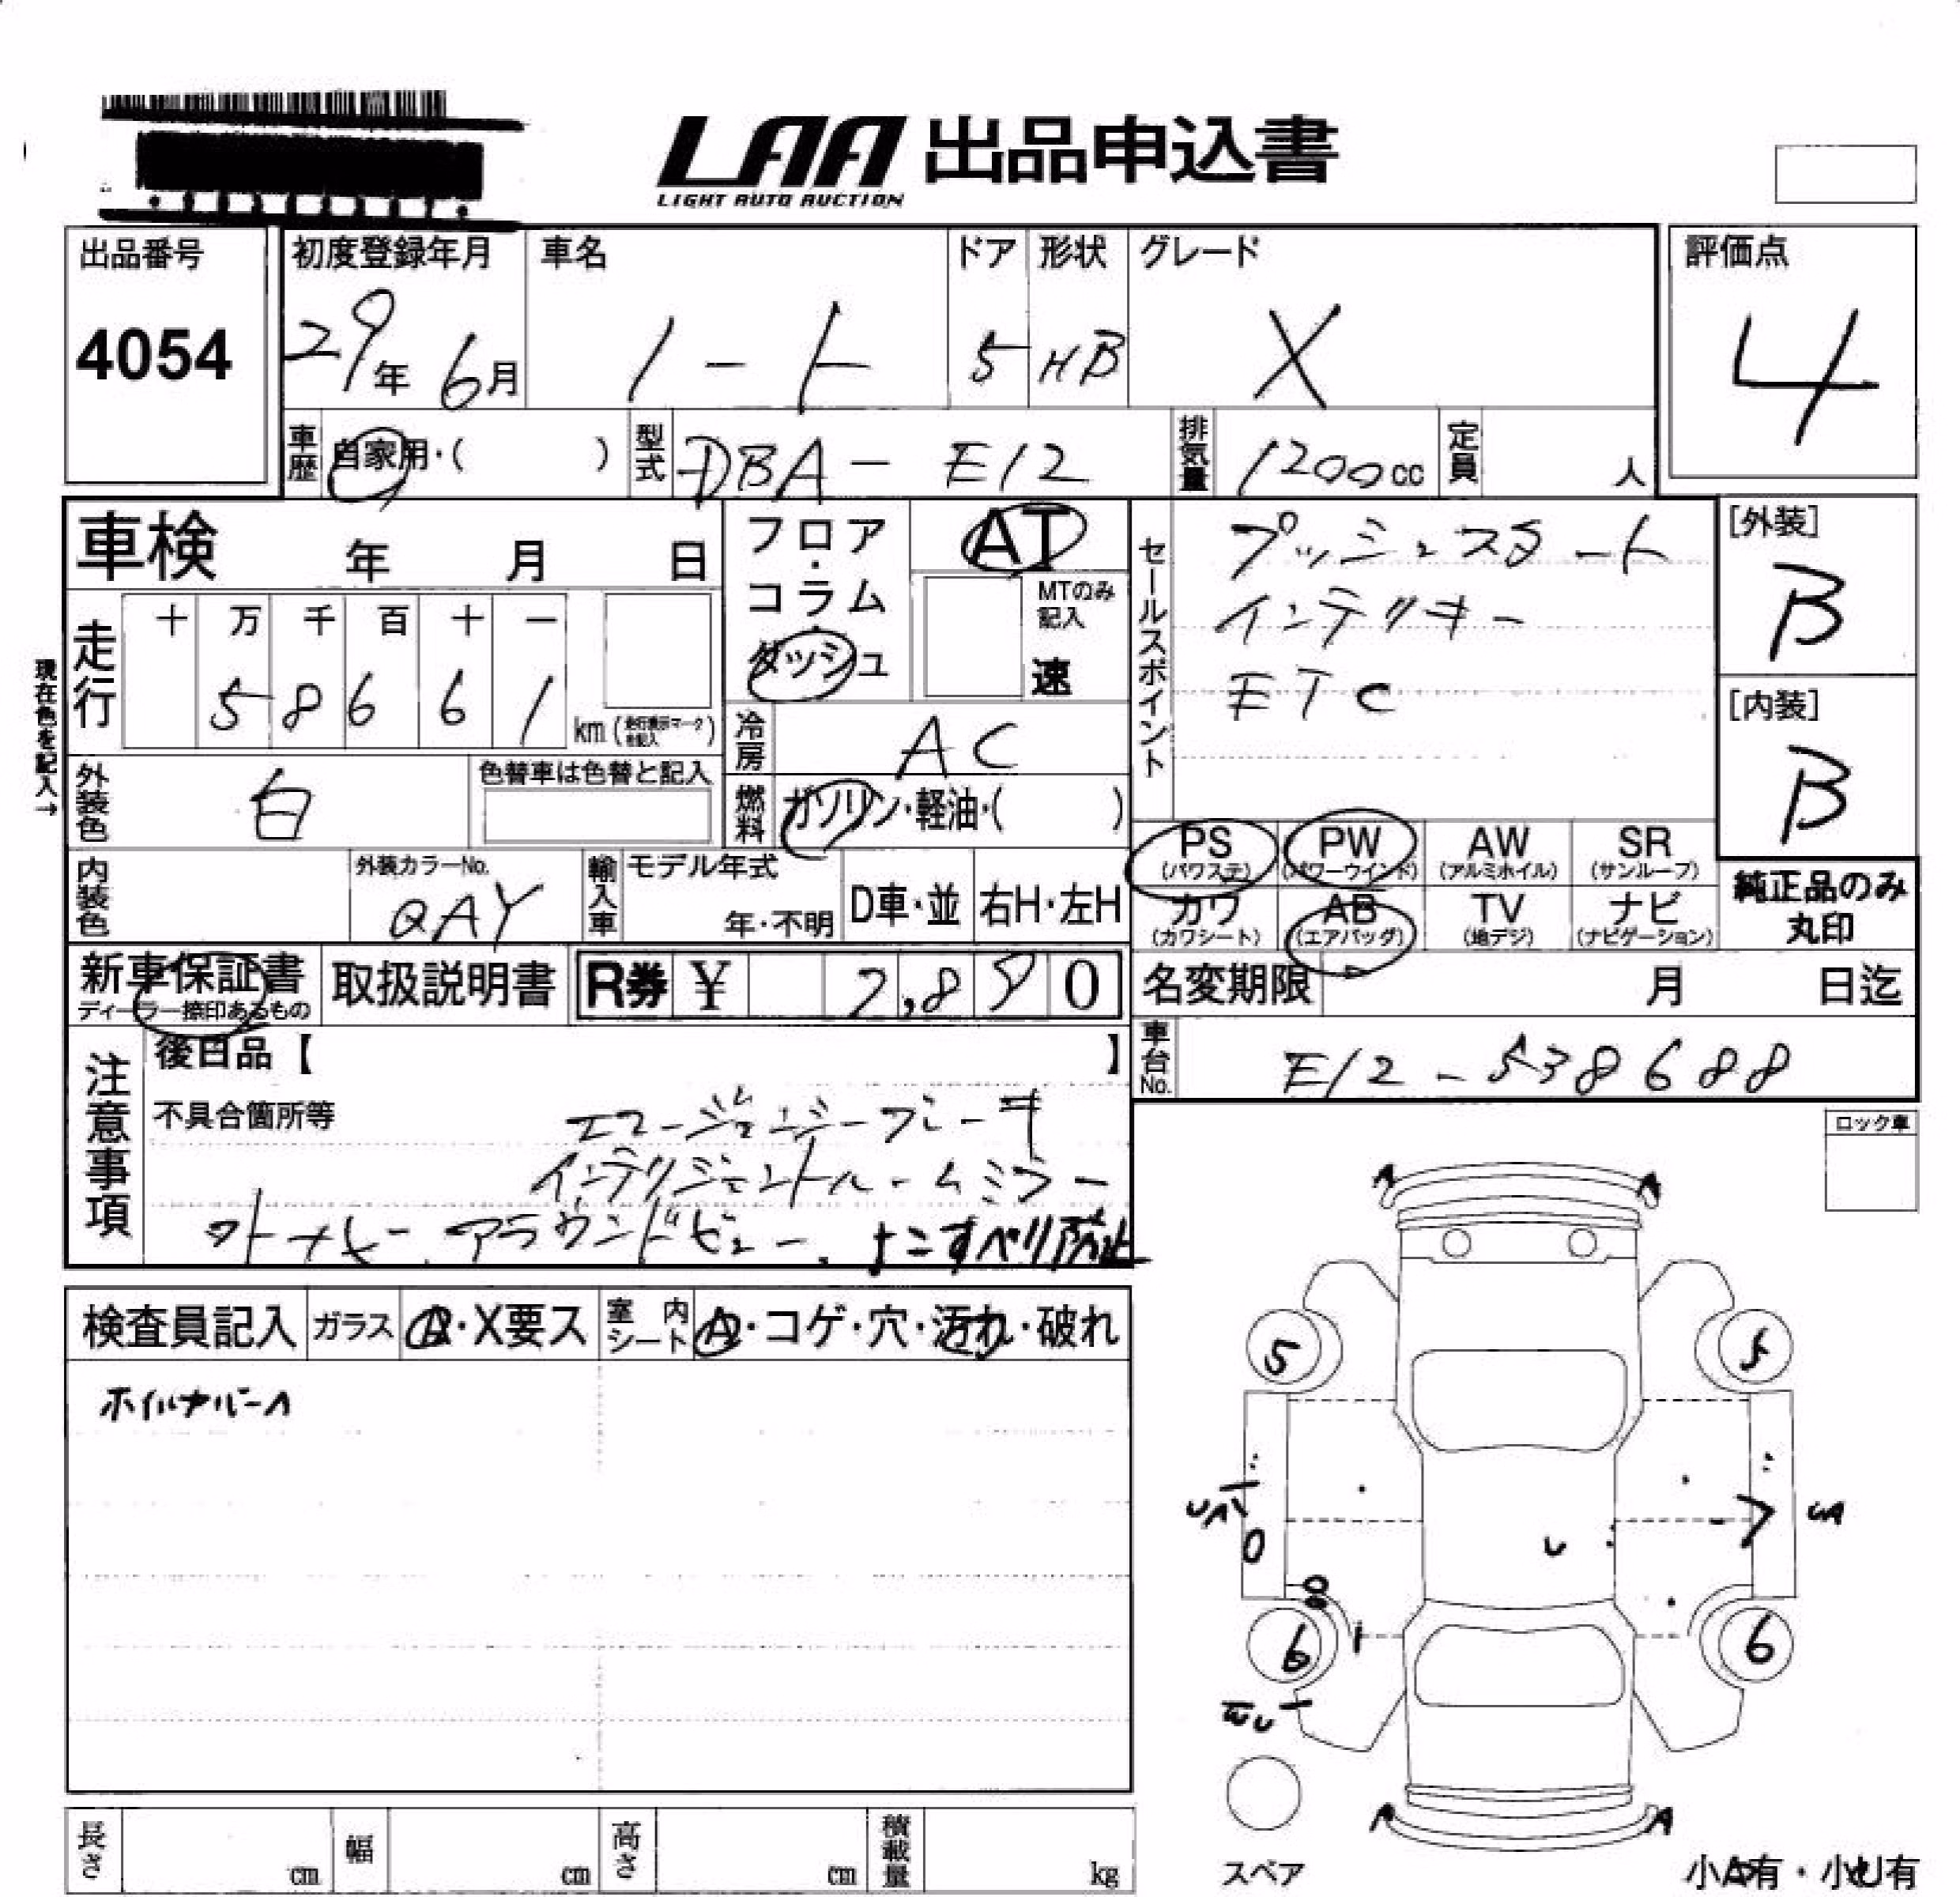 LAA 出品申込書
LIGHT AUTO AUCTION
出品番号
4054
初度登録年月
29年 6月
車名
ノート
ドア
5
形状
HB
グレード
X
評価点
4
車歴
自家用・( )
型式
DBA- E12
排気量
1200cc
定員
人
車検 年 月 日
フロア・コラム・ダッシュ
AT
MTのみ記入
速
セールスポイント
プッシュスタート
インテリキー
ETC
[外装]
B
[内装]
B
現在色を記入→
走行
十 万 千 百 十 一
5 8 6 6 1
km (走行表示マークを記入)
冷房
AC
外装色
白
色替車は色替と記入
燃料
ガソリン・軽油・( )
PS (パワステ)
PW (パワーウインド)
AW (アルミホイル)
SR (サンルーフ)
カワ (カワシート)
AB (エアバッグ)
TV (地デジ)
ナビ (ナビゲーション)
純正品のみ
丸印
内装色
外装カラーNo.
QAY
輸入車
モデル年式
年・不明
D車・並
右H・左H
新車保証書
ディーラー捺印あるもの
取扱説明書
R券 ¥ 0
名変期限 月 日迄
車台No.
E12-538688
注意事項
後日品【 】
不具合箇所等
エマージェンジーブレーキ
インテリジェントルームミラー
オートナビー. アラウンドビュー. よこすべり防止
ロック車
検査員記入
ガラス
A・X要ス
室内シート
A・コゲ・穴・汚れ・破れ
ホイルカバーA
A A
5 5
UA
UA
U
6 6
A A
スペア
小A有・小U有
長さ cm
幅 cm
高さ cm
積載量 kg